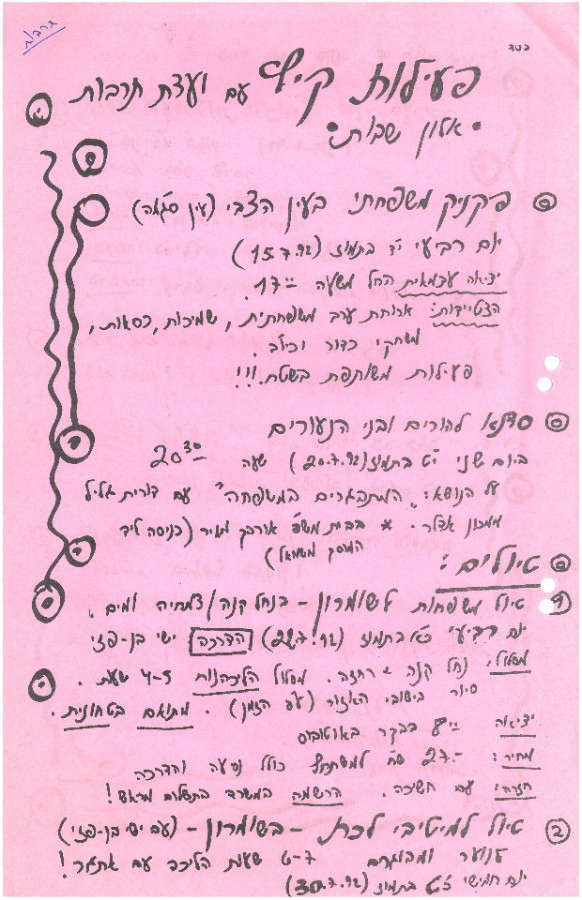 תרבות
בסד
פעילות קיץ עם ועדת תרבות
• אלון שבות:
פקניק משפחתי בעין הצבי (עין סג'מה)
יום רביעי י"ד בתמוז (15.7.92)
יציאה עצמאית החל משעה 17.00
הצטיידות: ארוחת ערב משפחתית, שמיכות, כסאות,
משחקי כדור וכיו"ב.
פעילות משותפת בשטח.!!!
סדנא להורים ובני הנעורים
ביום שני י"ט בתמוז (20.7.92) שעה 20.30
על הנושא: "המתבגרים במשפחה" עם דורית גליל
ממכון אדלר. * בבית משפ' אורבך מאיר (כניסה ליד
המסך משמאל)
טיולים:
1 טיול משפחות לשומרון - בנחל קנה / צמחיה ומים.
יום רביעי כ"א בתמוז (22.7.92) הדרכה ישי בן-פזי
מסלול: נחל קנה & חזרה. מסלול הליכהנוח 4-5 שעות.
סיור בישובי האזור (עם הזמן). מתואם בטחונית.
יציאה בבקר באוטובוס
מחיר: 27.- שח למשתתף כולל נסיעה והדרכה
חזרה: עם חשיכה. הרשמה במשרד בתשלום מראש!
2 טיול למיטיבי לכת - בשומרון - (עם ישי בן-פזי)
לנוער ומבוגרים 7-9 שעות הליכה עם אתגר!
יום חמישי כ"ט בתמוז (30.7.92)